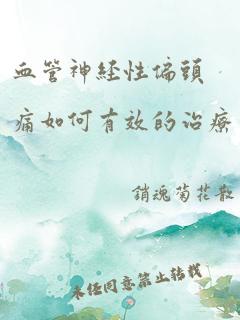 血管神经性偏頭
痛如何有效的治療
銷魂菊花散
未经同意禁止转载